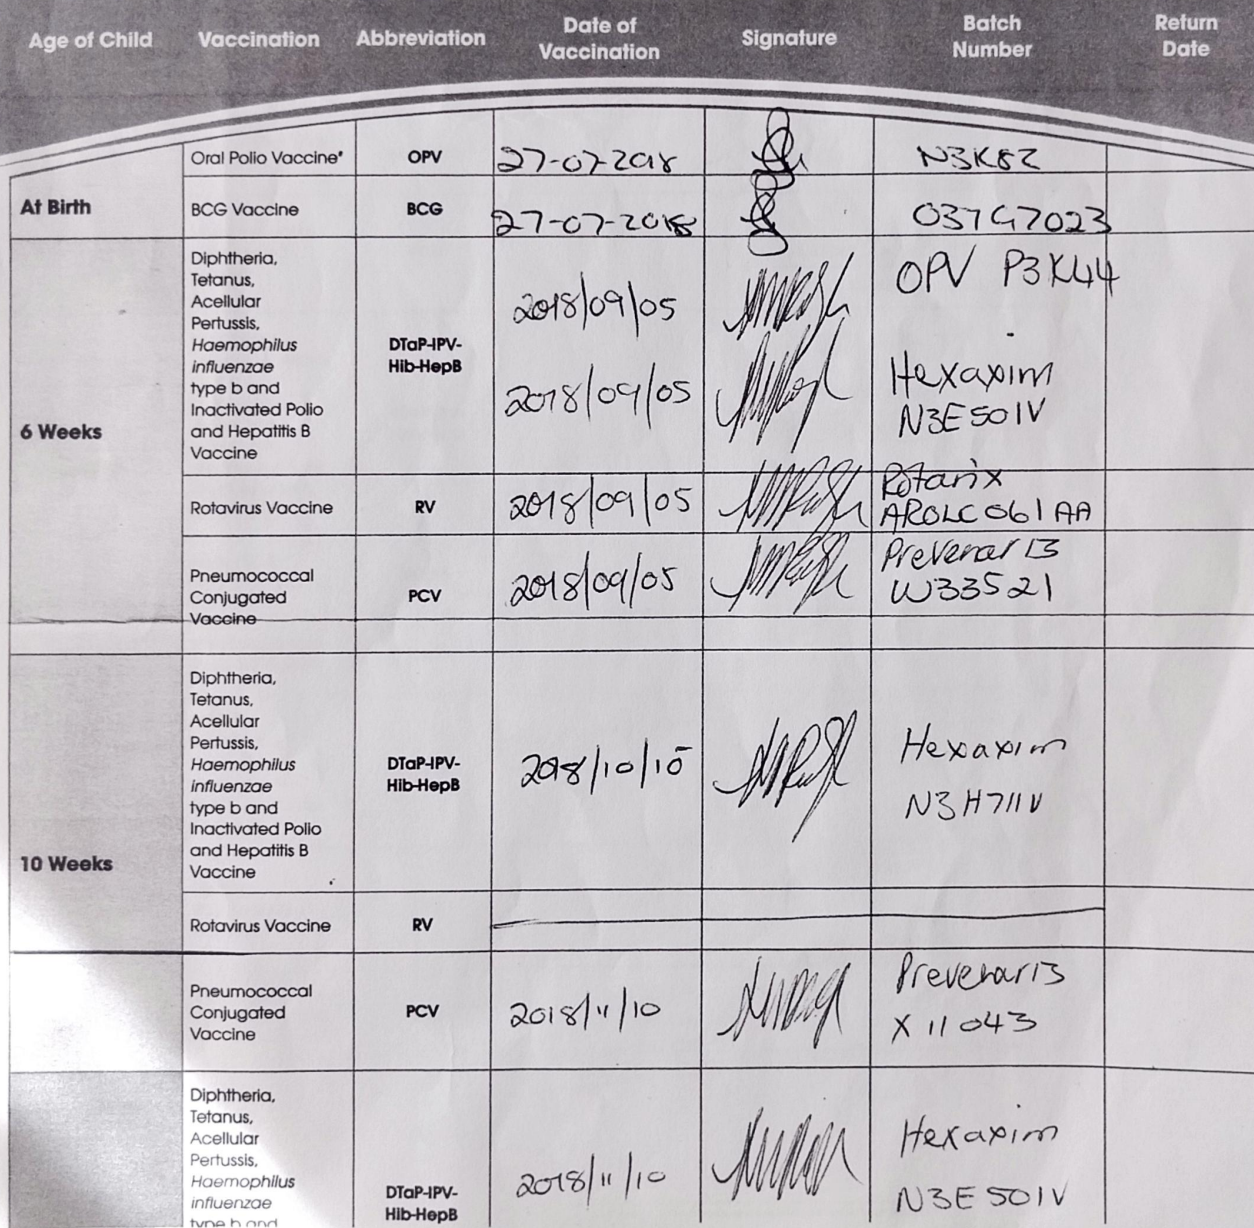 Age of Child Vaccination Abbreviation Date of Vaccination Signature Batch Number Return Date
At Birth
Oral Polio Vaccine* OPV 27-07-2018 N3K82
BCG Vaccine BCG 27-07-2018 037G7023
6 Weeks
Diphtheria,
Tetanus,
Acellular
Pertussis,
Haemophilus
influenzae
type b and
Inactivated Polio
and Hepatitis B
Vaccine
DTaP-IPV-
Hib-HepB
2018/09/05
OPV P3K44
2018/09/05
Hexaxim
N3E501V
Rotavirus Vaccine RV 2018/09/05
Rotarix
AROLC061AA
Pneumococcal
Conjugated
Vaccine
PCV
2018/09/05
Prevenar 13
W33521
10 Weeks
Diphtheria,
Tetanus,
Acellular
Pertussis,
Haemophilus
influenzae
type b and
Inactivated Polio
and Hepatitis B
Vaccine
DTaP-IPV-
Hib-HepB
2018/10/10
Hexaxim
N3H711V
Rotavirus Vaccine RV
Pneumococcal
Conjugated
Vaccine
PCV
2018/11/10
Prevenar13
X11043
Diphtheria,
Tetanus,
Acellular
Pertussis,
Haemophilus
influenzae
type b and
DTaP-IPV-
Hib-HepB
2018/11/10
Hexaxim
N3E501V